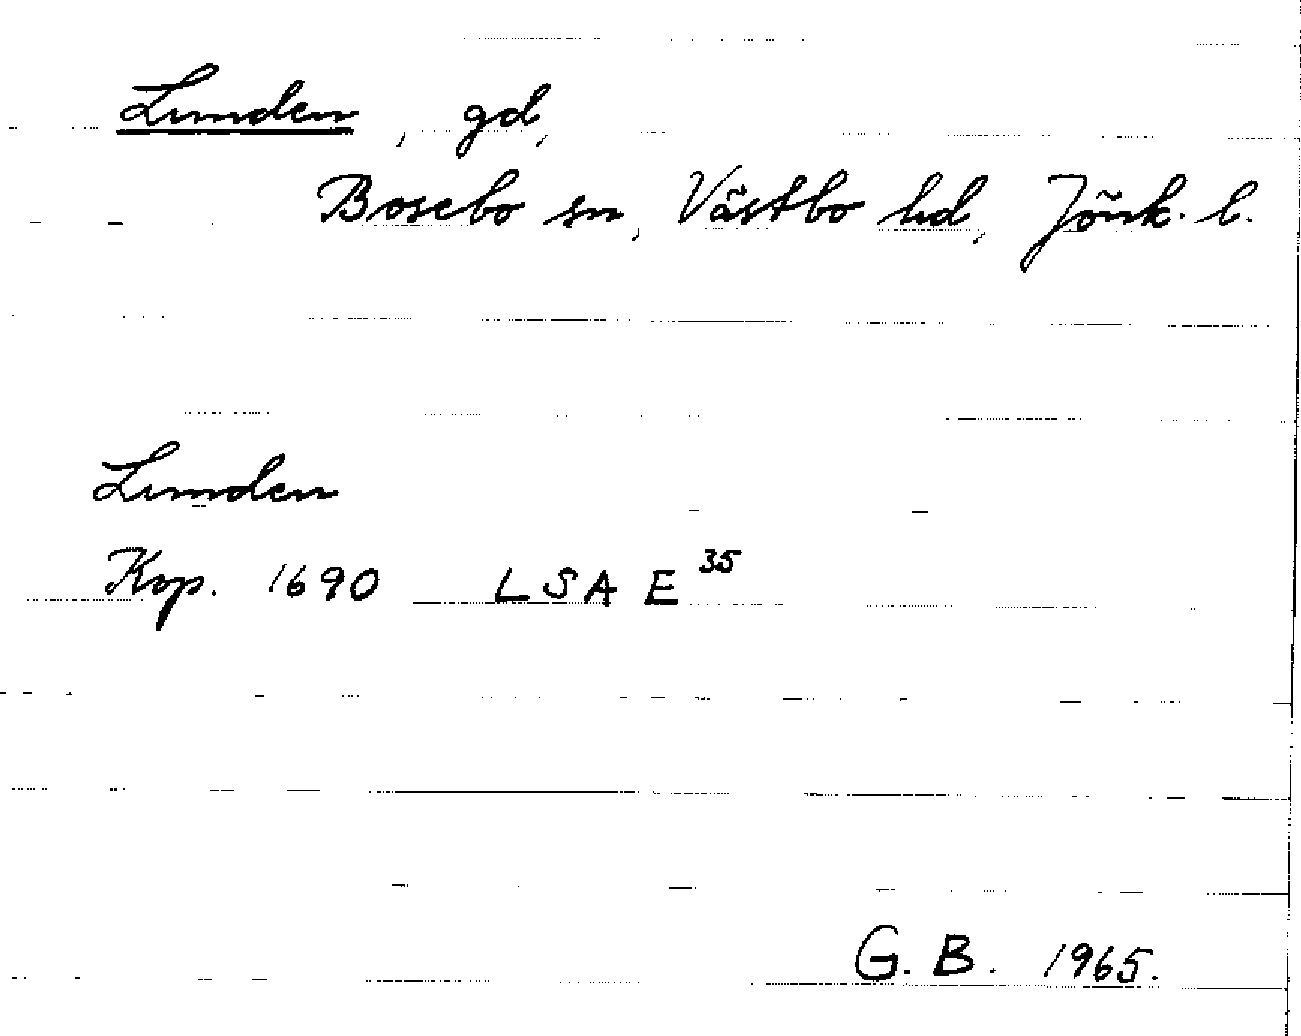 Lunden, gd,
Bosebo sn, Västbo hd, Jönk. l.
Lunden
Kop. 1690 LSA E 35
G. B. 1965.